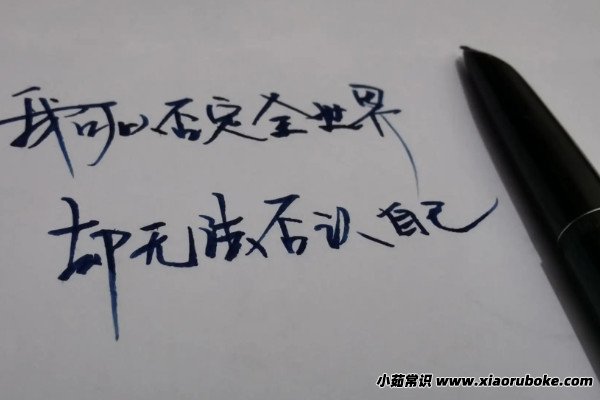 我可以否定全世界
却无法否认自己
小茹常识 www.xiaoruboke.com